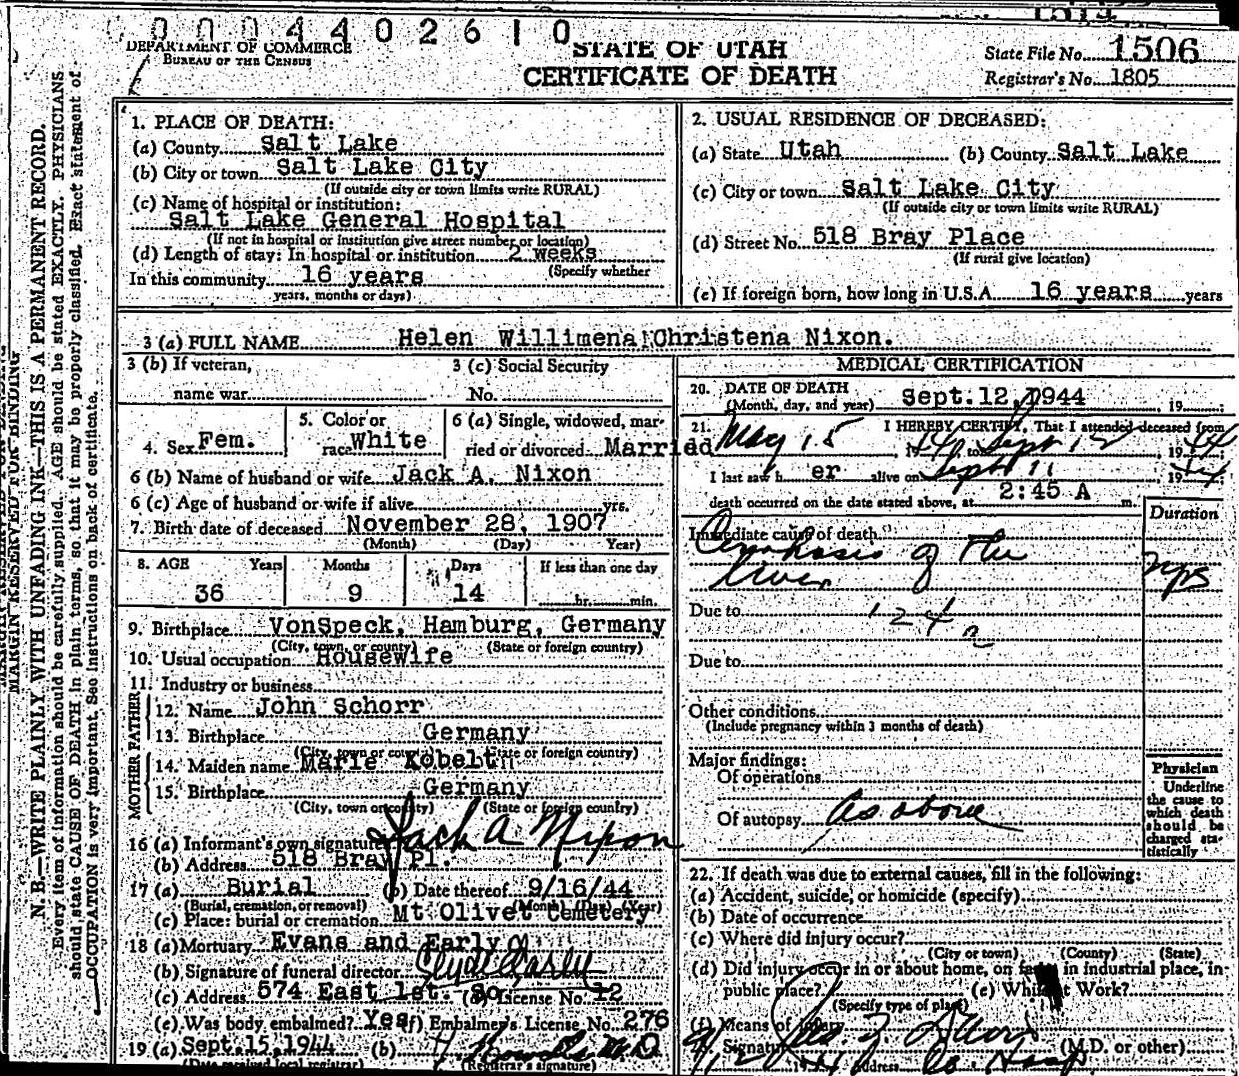 0 0 0 4 4 0 2 6 1 0
DEPARTMENT OF COMMERCE
BUREAU OF THE CENSUS
STATE OF UTAH
CERTIFICATE OF DEATH
State File No. 1506
Registrar's No. 1805
MARGIN RESERVED FOR BINDING
N. B.—WRITE PLAINLY WITH UNFADING INK—THIS IS A PERMANENT RECORD.
Every item of information should be carefully supplied. AGE should be stated EXACTLY. PHYSICIANS
should state CAUSE OF DEATH in plain terms, so that it may be properly classified. Exact statement of
OCCUPATION is very important. See instructions on back of certificate.
1. PLACE OF DEATH:
(a) County Salt Lake
(b) City or town Salt Lake City
(If outside city or town limits write RURAL)
(c) Name of hospital or institution:
Salt Lake General Hospital
(If not in hospital or institution give street number or location)
(d) Length of stay: In hospital or institution 2 weeks
(Specify whether
In this community 16 years
years, months or days)
2. USUAL RESIDENCE OF DECEASED:
(a) State Utah (b) County Salt Lake
(c) City or town Salt Lake City
(If outside city or town limits write RURAL)
(d) Street No. 518 Bray Place
(If rural give location)
(e) If foreign born, how long in U.S.A. 16 years years
3 (a) FULL NAME Helen Willimena Christena Nixon.
3 (b) If veteran,
name war
3 (c) Social Security
No.
4. Sex Fem.
5. Color or
race White
6 (a) Single, widowed, mar-
ried or divorced Married
6 (b) Name of husband or wife Jack A. Nixon
6 (c) Age of husband or wife if alive yrs.
7. Birth date of deceased November 28, 1907
(Month) (Day) Year)
8. AGE Years Months Days If less than one day
36 9 14 hr. min.
9. Birthplace VonSpeck, Hamburg, Germany
(City, town, or county) (State or foreign country)
10. Usual occupation Housewife
11. Industry or business
FATHER
12. Name John Schorr
13. Birthplace Germany
(City, town or county) State or foreign country)
MOTHER
14. Maiden name Marie Kobelt
15. Birthplace Germany
(City, town or county) (State or foreign country)
16 (a) Informant's own signature Jack A Nixon
(b) Address 518 Bray Pl.
17 (a) Burial (b) Date thereof 9/16/44
(Burial, cremation, or removal) (Month) (Day) (Year)
(c) Place: burial or cremation Mt Olivet Cemetery
18 (a) Mortuary Evans and Early
(b) Signature of funeral director Clyde Early
(c) Address 574 East 1st. So (d) License No. 12
(e) Was body embalmed? Yes (f) Embalmer's License No. 276
19 (a) Sept. 15, 1944 (b) M.D.
(Date received local registrar) (Registrar's signature)
MEDICAL CERTIFICATION
20. DATE OF DEATH
(Month, day, and year) Sept. 12, 1944 , 19
21. I HEREBY CERTIFY, That I attended deceased from
May 15 , 1944 to Sept 12 , 1944
I last saw h er alive on Sept 11 , 1944
death occurred on the date stated above, at 2:45 A m.
Duration
Immediate cause of death
Cirrhosis of the
liver
yrs
Due to 124
Due to
Other conditions
(Include pregnancy within 3 months of death)
Major findings:
Of operations
Of autopsy As above
Physician
Underline
the cause to
which death
should be
charged sta-
tistically
22. If death was due to external causes, fill in the following:
(a) Accident, suicide, or homicide (specify)
(b) Date of occurrence
(c) Where did injury occur?
(City or town) (County) (State)
(d) Did injury occur in or about home, on farm, in industrial place, in
public place? (e) While at Work?
(Specify type of place)
(f) Means of injury
Signature (M.D. or other)
Address Co. Hosp